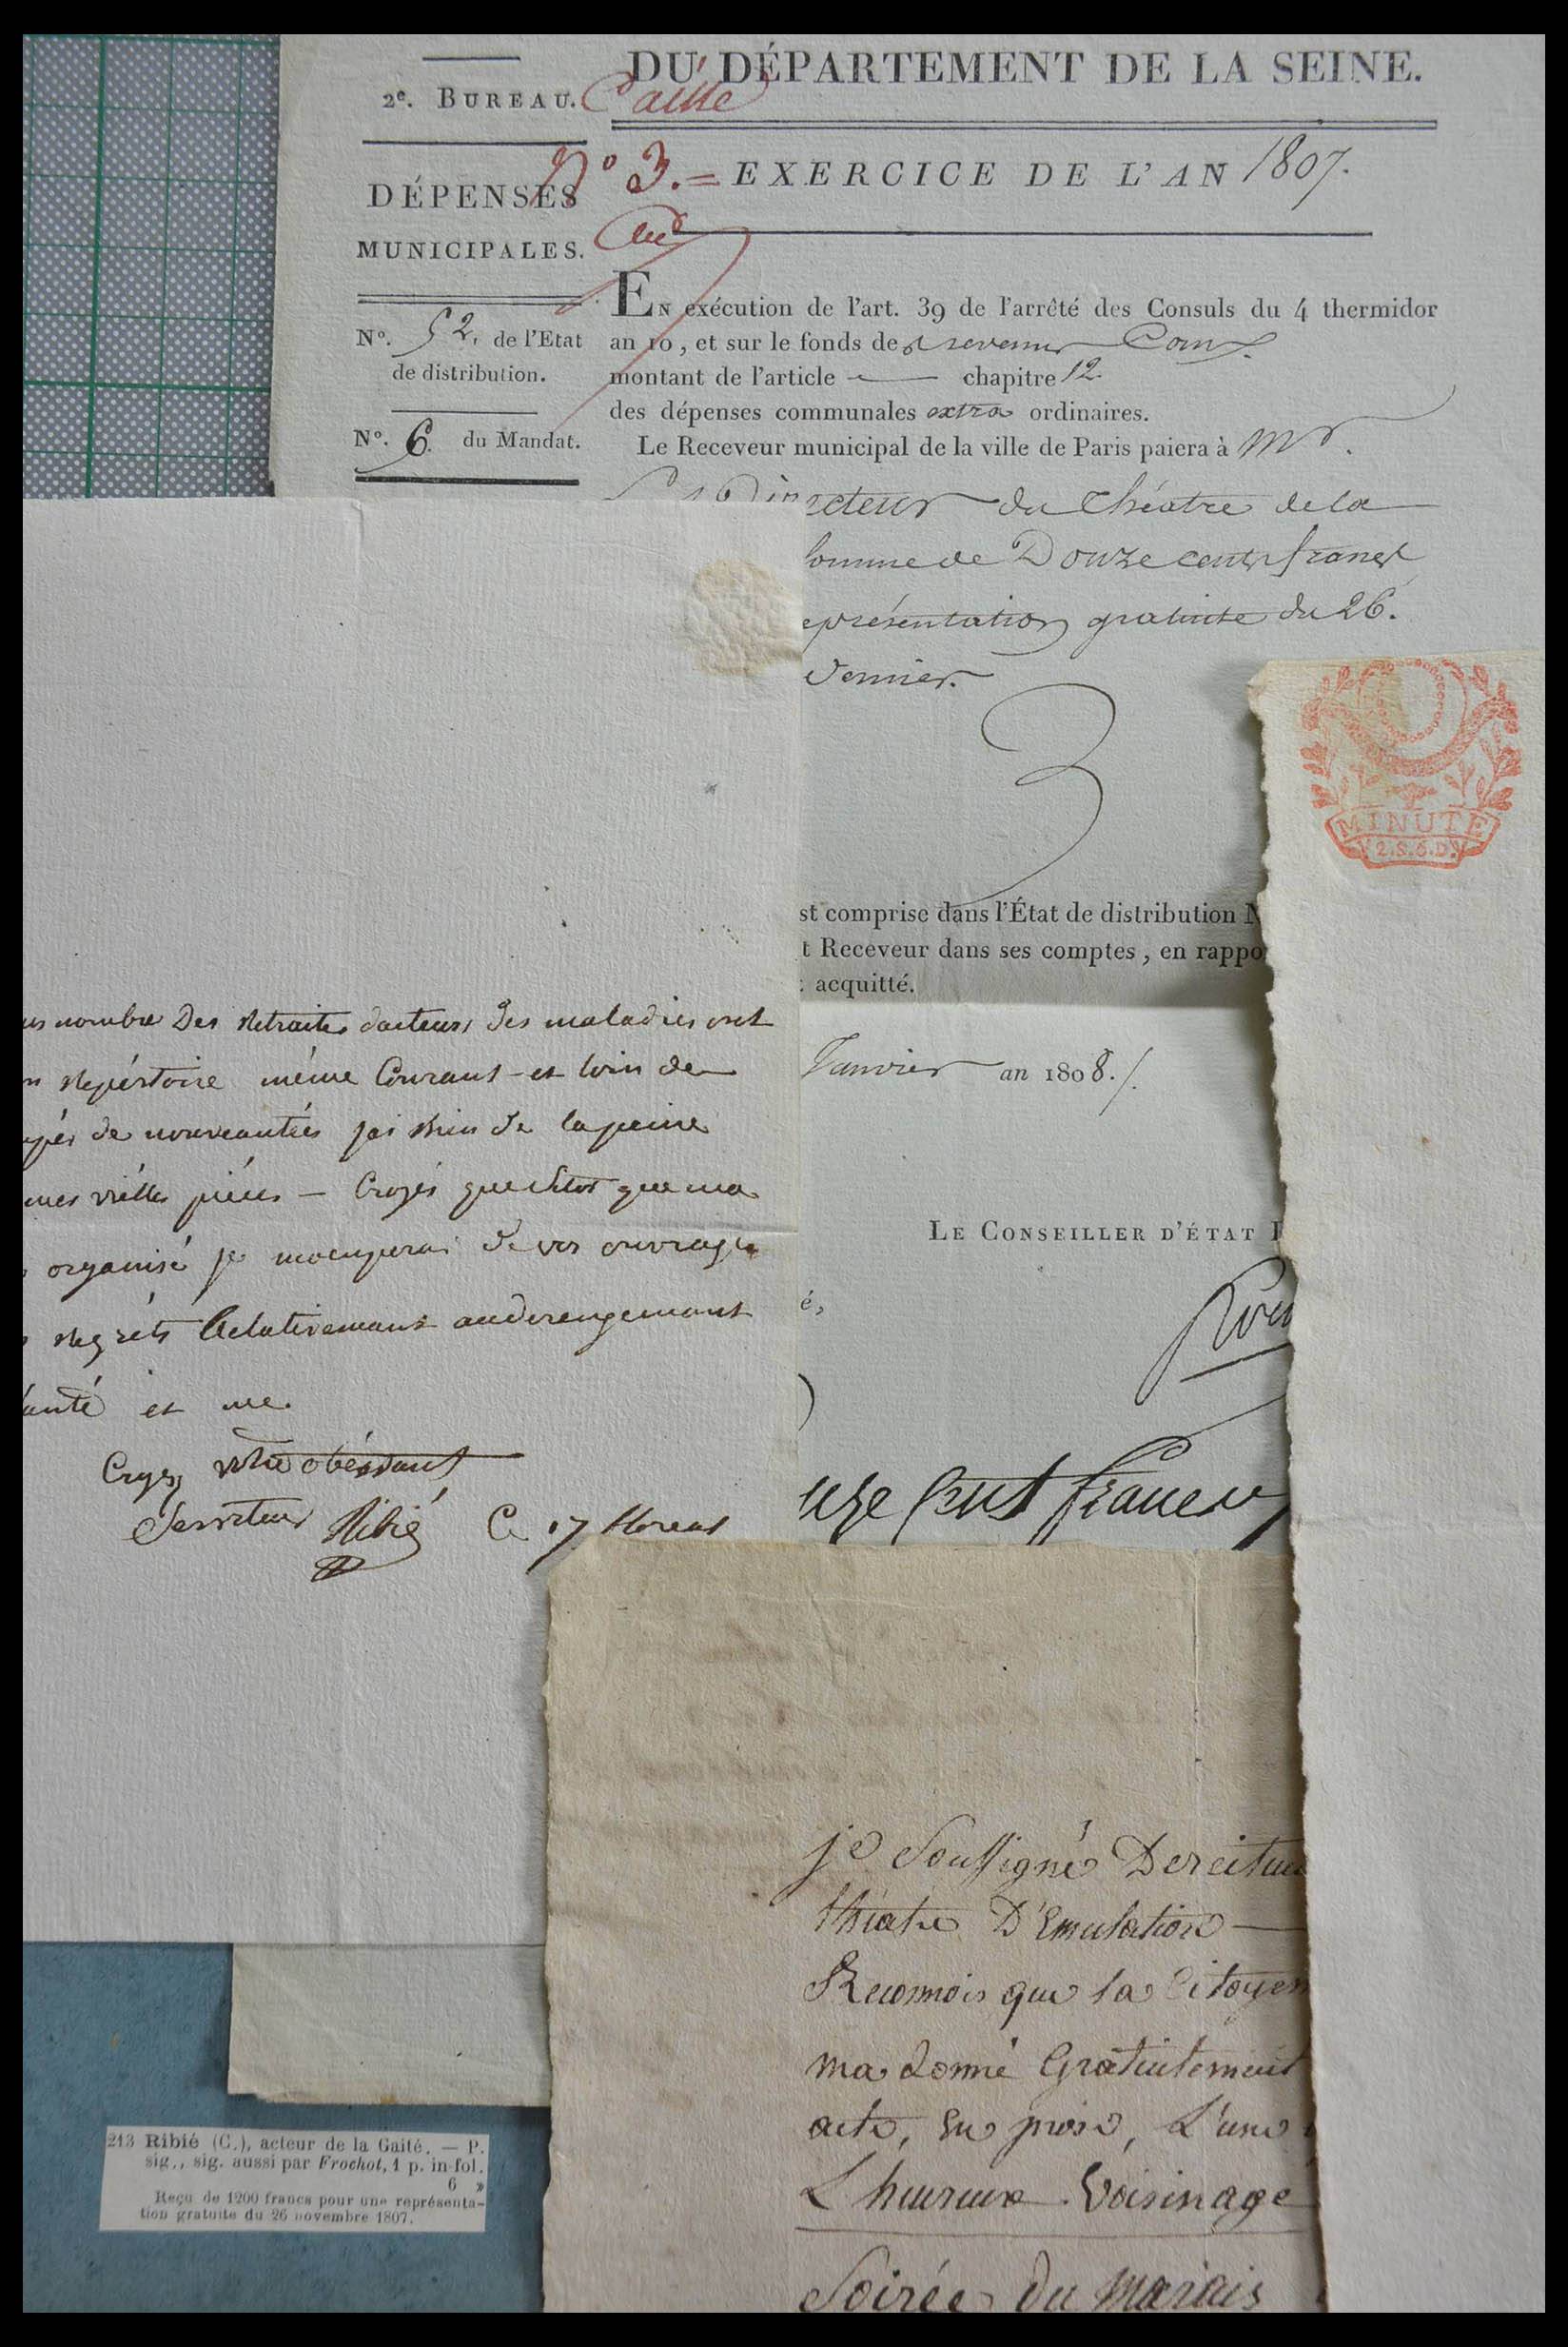 DU DÉPARTEMENT DE LA SEINE.
2e. BUREAU.
Caisse
N° 3. = EXERCICE DE L'AN 1807.
DÉPENSES
MUNICIPALES.
No. 52, de l'Etat
de distribution.
No. 6. du Mandat.
EN exécution de l'art. 39 de l'arrêté des Consuls du 4 thermidor
an 10, et sur le fonds des revenus Com
montant de l'article — chapitre 12.
des dépenses communales extra ordinaires.
Le Receveur municipal de la ville de Paris paiera à Mr.
Directeur du théatre de la
somme de Douze cents francs
eprésentation gratuite du 26.
dernier.
st comprise dans l'État de distribution N
t Receveur dans ses comptes, en rappo
: acquitté.
Janvier an 1808./.
LE CONSEILLER D'ÉTAT
é,
uze Cent francs
MINUTE
2.S.6.D.
us nombre Des Retraites dacteurs des maladies ont
n Repértoire même Courant et loin de
upés de nouveautés jai bien de la peine
mes viélles piéces — Croyés que sitot que ma
organisé je mocuperai de vos ouvrages
Regréts Relativemant auderengemant
santé et me.
Croyez votre obéissant
Serviteur Ribié Ce 17 floreal
je Soussigné Dereiteur
théatre D'Emulation —
Reconnois que la Citoyen
ma donné Gratuitement
acte, En prose, L'une
L'heureux Voisinage
Soirée du Marais
213 Ribié (C.), acteur de la Gaité. — P.
sig., sig. aussi par Frochot, 1 p. in-fol.
6 »
Reçu de 1200 francs pour une représenta-
tion gratuite du 26 novembre 1807.